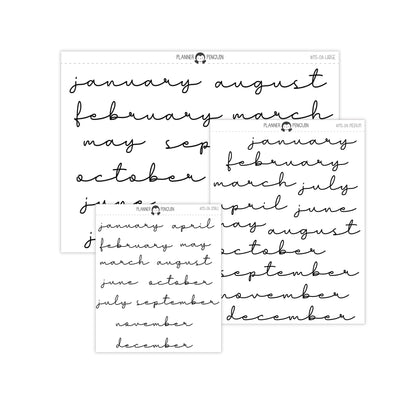 PLANNER PENGUIN
january august
february march
may sep
october
june
j
PLANNER PENGUIN
january
february
march july
april june
may august
october
september
november
december
PLANNER PENGUIN
january april
february may
march august
june october
july september
november
december